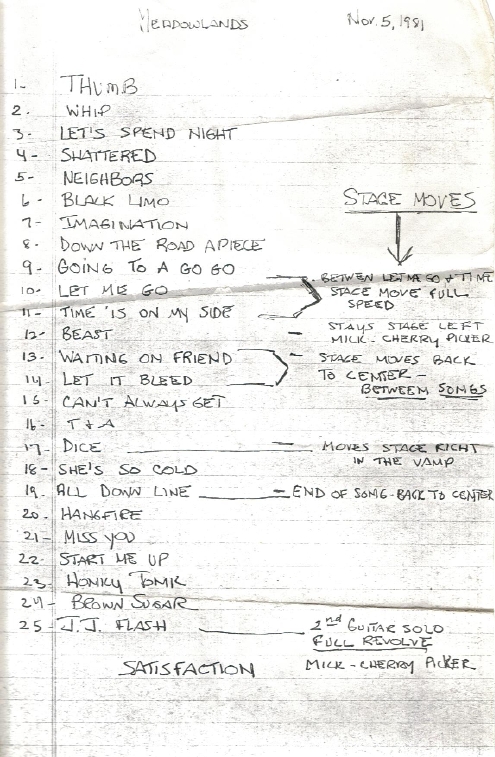 MEADOWLANDS Nov. 5, 1981
1- THUMB
2. WHIP
3- LET'S SPEND NIGHT
4- SHATTERED
5- NEIGHBORS
6- BLACK LIMO
7- IMAGINATION
8- DOWN THE ROAD APIECE
9- GOING TO A GO GO
10- LET ME GO
11- TIME 'IS ON MY SIDE
12- BEAST
13- WAITING ON FRIEND
14- LET IT BLEED
15- CAN'T ALWAYS GET
16- T & A
17- DICE
18- SHE'S SO COLD
19. ALL DOWN LINE
20- HANGFIRE
21- MISS YOU
22- START ME UP
23- HONKY TONK
24- BROWN SUGAR
25- J.J. FLASH
SATISFACTION
STAGE MOVES
- BETWEN LET ME GO & TIME
STAGE MOVE FULL
SPEED
- STAYS STAGE LEFT
MICK - CHERRY PICKER
- STAGE MOVES BACK
TO CENTER -
BETWEEN SONGS
- MOVES STAGE RIGHT
IN THE VAMP
- END OF SONG - BACK TO CENTER
2nd GUITAR SOLO
FULL REVOLVE
MICK - CHERRY PICKER